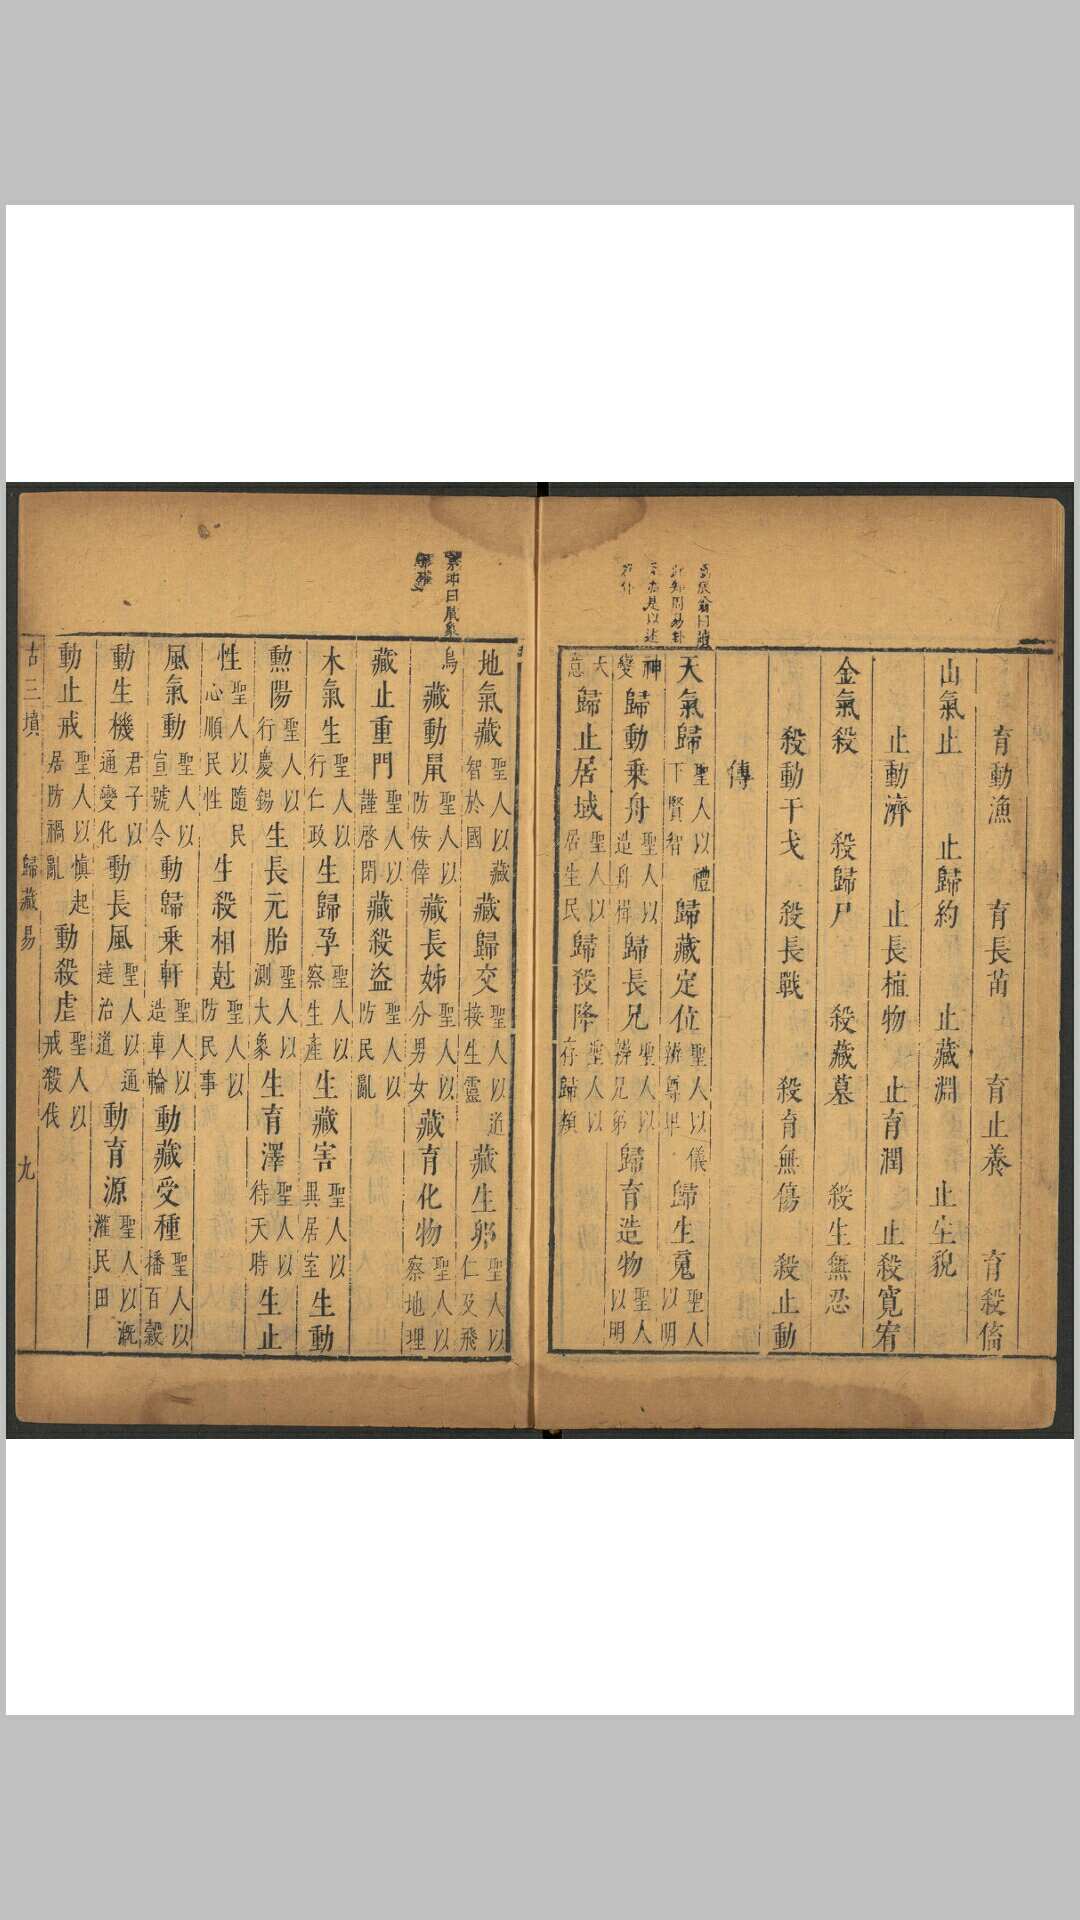 育動漁　育長苗　育止養　育殺畜
山氣止　止歸約　止藏淵　止生貌
止動濟　止長植物　止育潤　止殺寬宥
金氣殺　殺歸尸　殺藏墓　殺生無忍
殺動干戈　殺長戰　殺育無傷　殺止動
傳
天氣歸 聖人以禮下賢智 歸藏定位 聖人以儀辨尊卑 歸生䰟 聖人以明
神變 歸動乘舟 聖人以造舟楫 歸長兄 聖人以辨兄弟 歸育造物 聖人以明
大意 歸止居域 聖人以居生民 歸殺降 聖人以存歸類
地氣藏 聖人以藏智於國 藏歸交 聖人以道接生靈 藏生卵 聖人以仁及飛
鳥 藏動鼠 聖人以防侫倖 藏長姊 聖人以分男女 藏育化物 聖人以察地理
藏止重門 聖人以謹啓閉 藏殺盜 聖人以防民亂
木氣生 聖人以行仁政 生歸孕 聖人以察生產 生藏害 聖人以異居室 生動
勲陽 聖人以行慶錫 生長元胎 聖人以測大象 生育澤 聖人以待天時 生止
性 聖人以隨民心順民性 生殺相尅 聖人以防民事
風氣動 聖人以宣號令 動歸乘軒 聖人以造車輪 動藏受種 聖人以播百穀
動生機 君子以通變化 動長風 聖人以通達治道 動育源 聖人以漑灌民田
動止戒 聖人以慎起居防禍亂 動殺虐 聖人以戒殺伐
古三墳　歸藏易　九